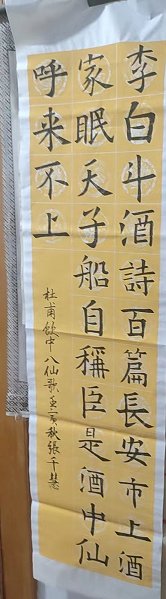 李白斗酒詩百篇長安市上酒
家眠天子船自稱臣是酒中仙
呼来不上
杜甫飲中八仙歌 秋張千慧